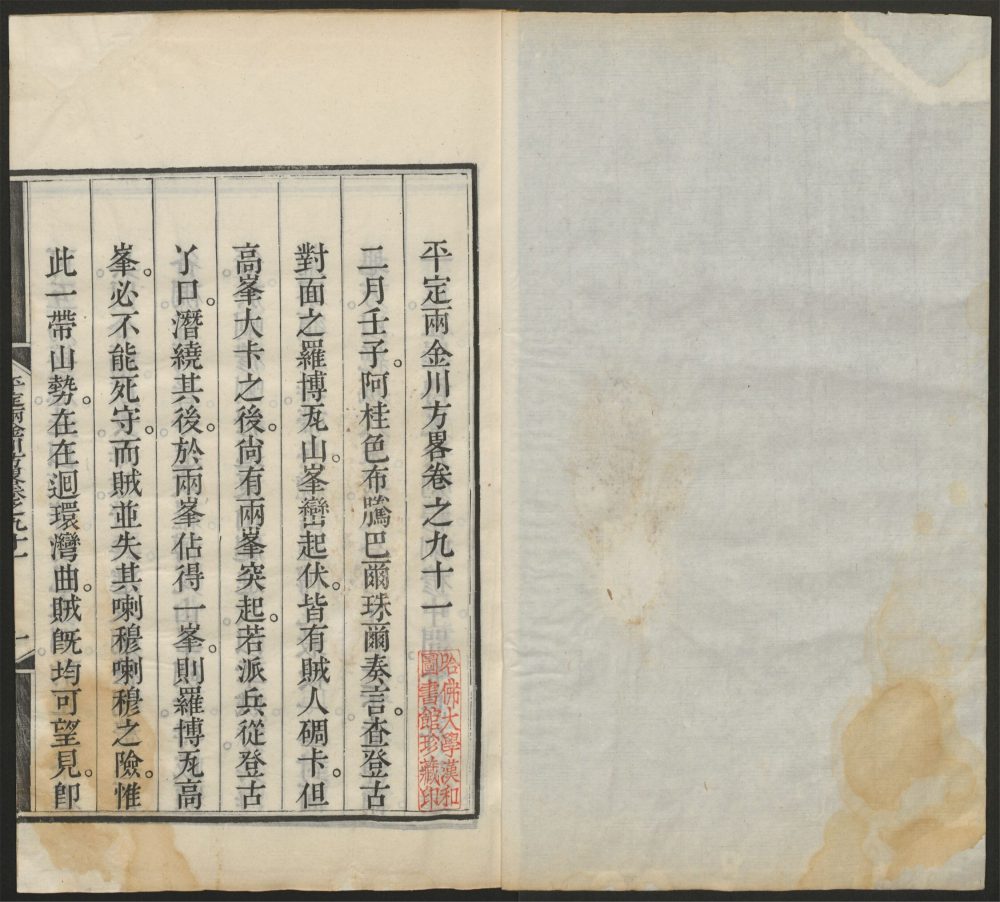 平定兩金川方畧卷之九十一
二月壬子。阿桂色布騰巴爾珠爾奏言。查登古
對面之羅博瓦山。峯巒起伏。皆有賊人碉卡。但
高峯大卡之後。尙有兩峯突起。若派兵從登古
丫口。潛繞其後。於兩峯佔得一峯。則羅博瓦高
峯。必不能死守。而賊並失其喇穆喇穆之險。惟
此一帶山勢。在在迴環灣曲。賊旣均可望見。卽
哈佛大學漢和
圖書館珍藏印
平定兩金川方畧卷之九十一
一